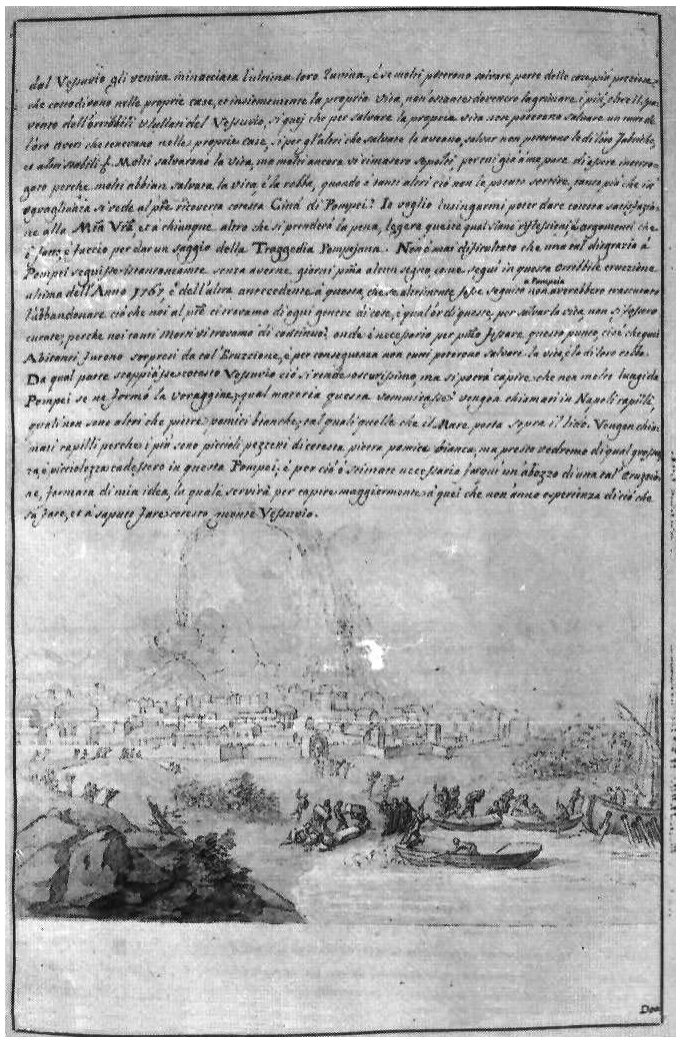 dal Vessuvio gli veniva minacciata l'ultima loro Ruvina, è se molti poterono salvare parte delle cose più preziose
che costodivono nelle proprie case, et insiememente la propria vita, non'ostante dovettero lagrimare i più, oltre il spa-
vento dell'orribili ululati del Vessuvio, si quei che per salvare la propria vita non poterono salvare
l'oro averi che tenevano nelle proprie case, si per gl'altri che salvate le aveano, salvar non potevano le di loro fabriche,
et altri stabili &. Molti salvarono la vita, ma molti ancora vi rimasero sepolti, per mi già à me pare di essere interro-
gato perche molti abbian salvata la vita è la robba, quando è tanti altri ciò non le potuto sortire, tanto più che in
eguaglianza si vede al pñte ricoverta cotesta Città di Pompei? Io voglio lusingarmi poter dare cotesta satisfazio-
ne alla Mia Vrã, et a chiunque altro che si prenderà la pena, legere queste qual siano riflessioni è argomenti che
è fatto, è faccio per dar un saggio della Traggedia Pompejana. Non è mai dificultato che una tal disgrazia à
Pompei seguisse istantaneamente senza averne giorni prima alcun segno, come seguì in questa orribile eruzzione
a Pompeia
ultima dell'Anno 1767, è dell'altra antecedente à questa, che se altrimente fosse seguito non averebbero trascurato
l'abbandonare ciò che noi al pñte ci trovamo di ogni genere di cose, è qual'or di queste, per salvar la vita, non si fossero
curate; perche noi tanti Morti vi trovamo di continuo?, onde è necessario per pñto fessare questo punto, cioè che quei
Abitanti furono sorpresi da tal'Eruzzione, è per conseguenza non tutti poterono salvare la vita, è la di loro robba.
Da qual parte scoppiasse cotesto Vessuvio ciò si rende oscurissimo, ma si potrà capire che non molto lungi da
Pompei se ne formò la voraggine; qual materia questa vommitasse? vengon chiamati in Napoli rapilli,
quali non sono altri che pietre pomici bianche, tal quali quelle che il Mare porta sopra il lido. Vengon chia-
mati rapilli perche i più sono piccioli pezzetti di cotesta pietra pomice bianca, ma presto vedremo di qual grossez-
za, è picciolezza cadessero in questa Pompei, è per ciò ò stimato necessario far qui un'abozzo di una tal'Eruzzio-
ne, formata di mia idea, la quale servirà per capire maggiormente à quei che non anno esperienza di ciò che
sà fare, et à saputo fare cotesto monte Vessuvio.
Don